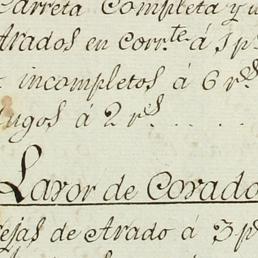 Carreta Completa y u
Arados en corr.te á 1 p
incompletos á 6 r.s
ugos á 2 r.s . . .
Lavor de Corado
ejas de Arado á 3 p